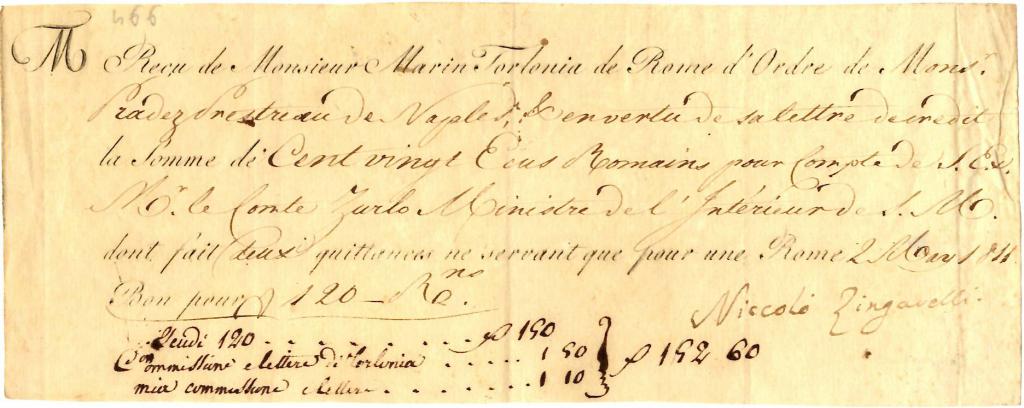 466
M Reçu de Monsieur Marin Torlonia de Rome d'Ordre de Monsr.
Pradez Prestreau de Naples, & en vertu de sa lettre de credit
la Somme de Cent vingt Ecus Romains pour Compte de S. Ex.
Mr. le Comte Zurlo Ministre de l'Intérieur de S. M.
dont fait deux quittances ne servant que pour une Rome 2 May 1811
Bon pour 120 — Rns. Niccolò Zingarelli
Scudi 120 . . . . . . . . 150
Commissione e lettere di Torlonia . . . . 1 50 } 152 60
mia commissione e lettere . . . . . . . 1 10